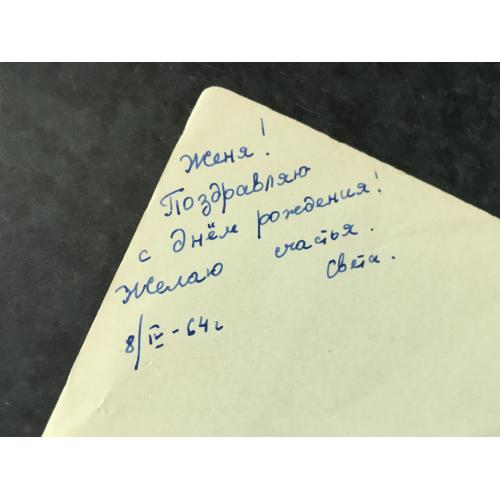 Женя!
Поздравляю
с днём рождения!
Желаю счастья.
Света.
8/IV-64г